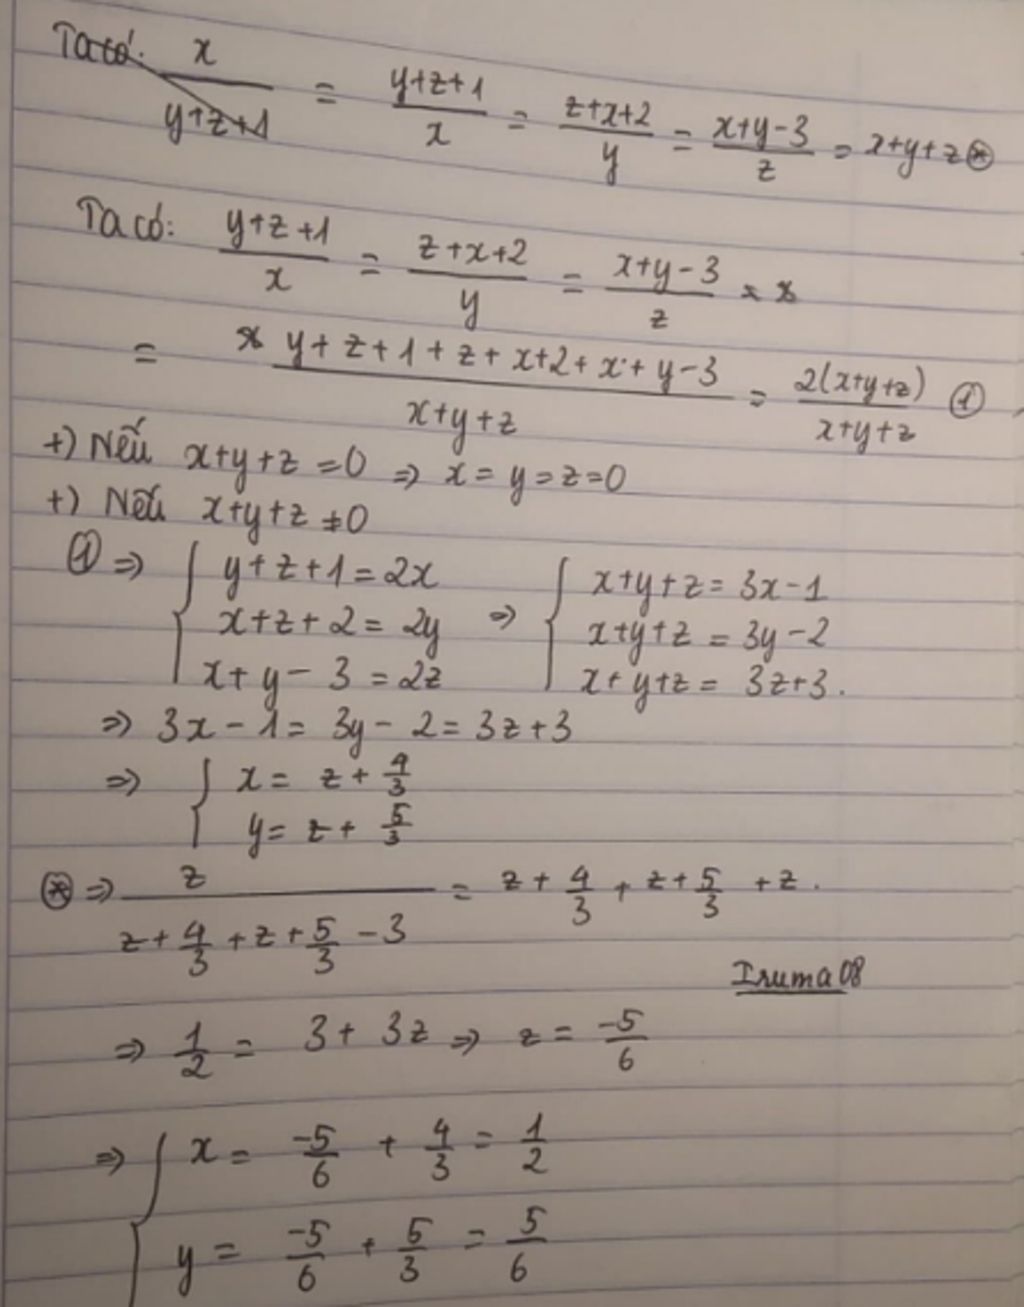 Ta có: x / (y+z+1) = (y+z+1)/x = (z+x+2)/y = (x+y-3)/z = x+y+z ⊛
Ta có: (y+z+1)/x = (z+x+2)/y = (x+y-3)/z
= (y+z+1+z+x+2+x+y-3)/(x+y+z) = 2(x+y+z)/(x+y+z) ①
+) Nếu x+y+z=0 => x=y=z=0
+) Nếu x+y+z≠0
① => { y+z+1=2x => { x+y+z=3x-1
x+z+2=2y x+y+z=3y-2
x+y-3=2z x+y+z=3z+3.
=> 3x-1=3y-2=3z+3
=> { x=z+4/3
y=z+5/3
⊛ => z/(z+4/3+z+5/3-3) = z+4/3+z+5/3+z.
Iruma08
=> 1/2 = 3+3z => z = -5/6
=> { x = -5/6 + 4/3 = 1/2
y = -5/6 + 5/3 = 5/6